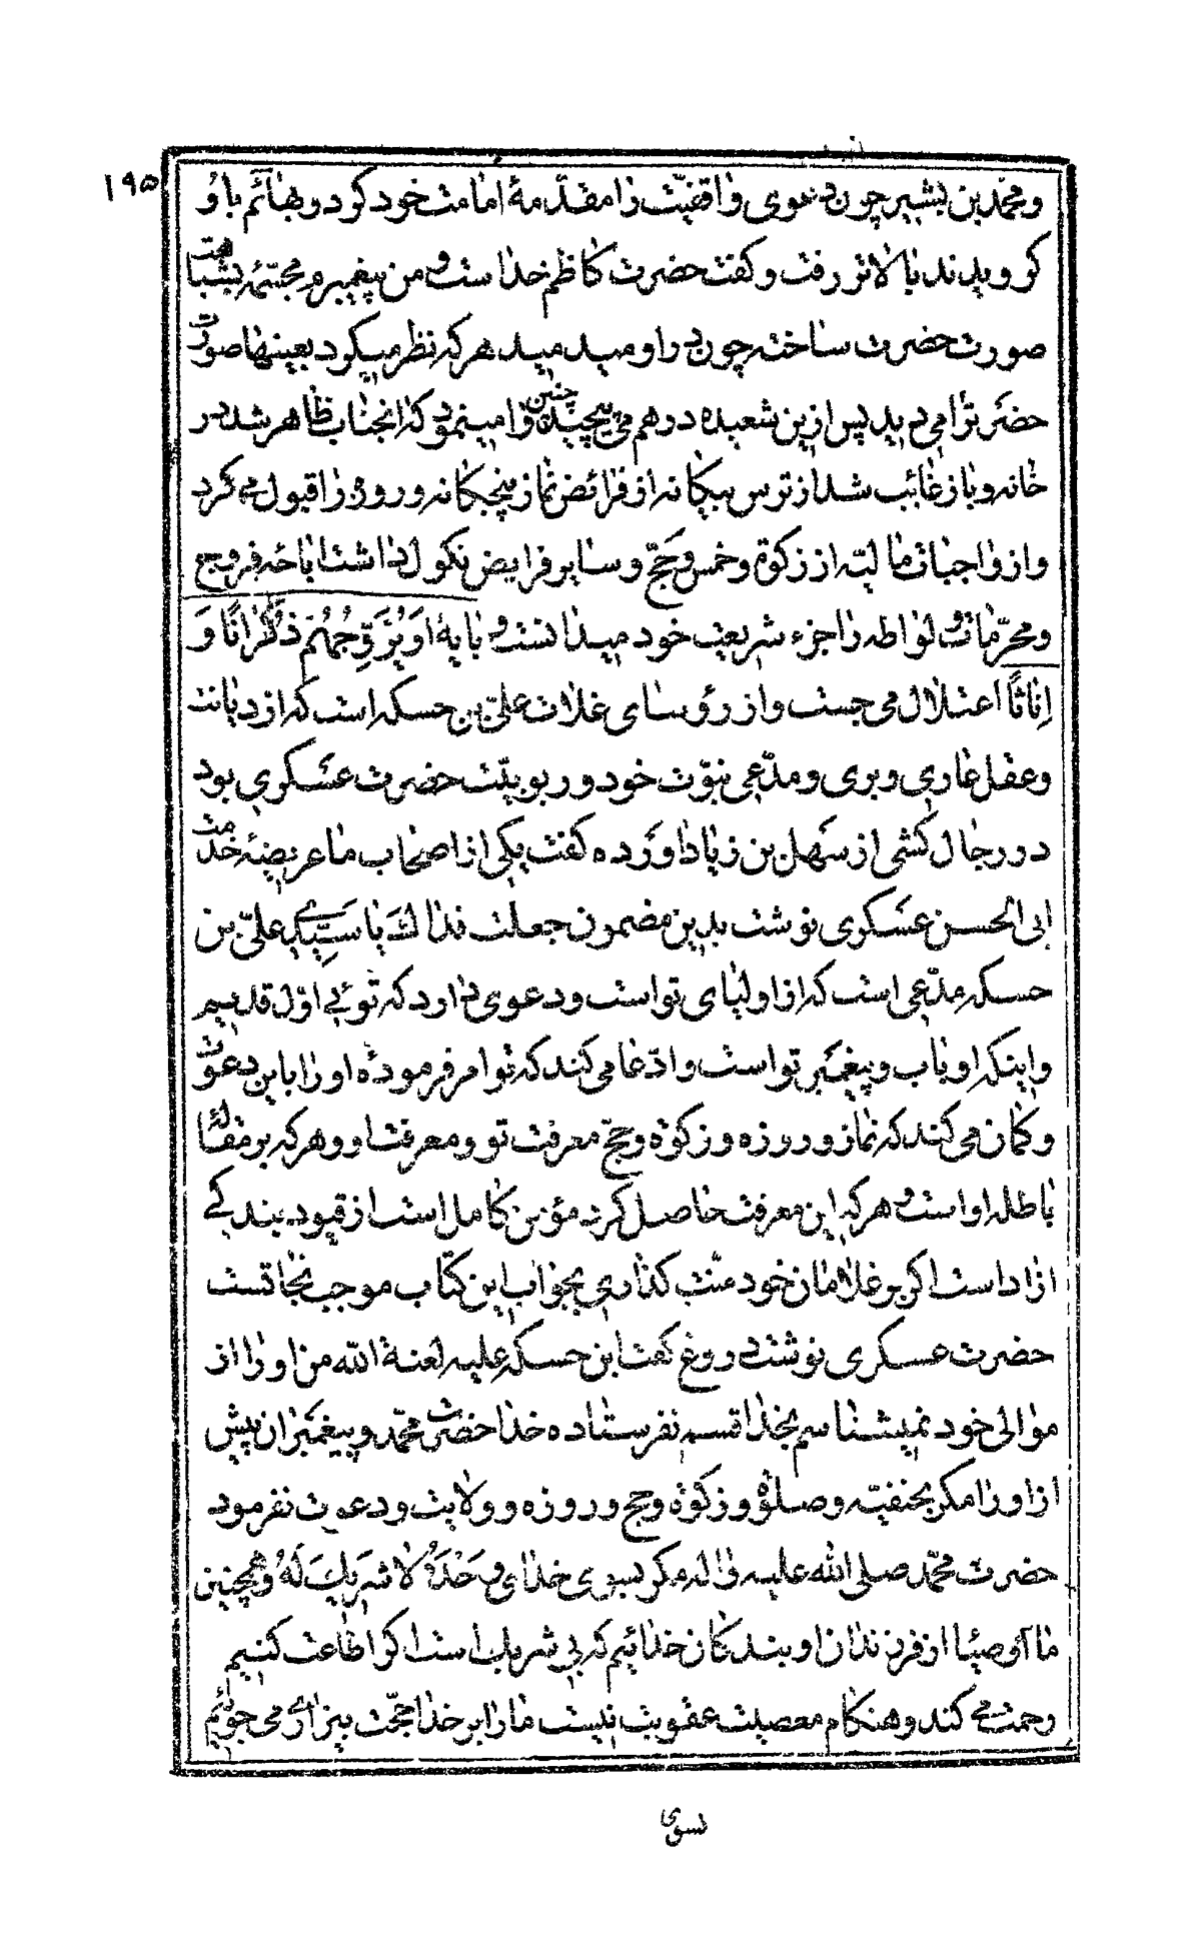 ۱۹۵
و محمّد بن بشیر چون دعوی واقفیّت را مقدّمهٔ امامت خود کرد و بهائم باو
کرویدند بالاتر رفت و کفت حضرت کاظم خداست و من پیغمبرم مجسّمهٔ بشباهت
صورت حضرت ساخته چون در او میدمید هرکه نظر میکرد بعینها صورت
حضرترا می دید پس ازین شعبده درهم می پیچید چنین وامینمود که انجناب ظاهر شد در
خانه و باز غائب شد از ترس بیکانه از فرائض نماز پنجکانه و روزه را قبول می کرد
و از واجبات مالیّه از زکوة و خمس و حجّ و سایر فرایض نکول داشت اباحه فروج
و محرّمات و لواطه را جزء شریعت خود میدانست و بایهٔ اَوْ یُزَوِّجُهُمْ ذُکْرَانًا وَ
اِنَاثًا اعتلال می جست و از رؤسای غلات علیّ بن حسکه است که از دیانت
و عقل عاری و بری و مدّعی نبوّت خود و ربوبیّت حضرت عسکری بود
در رجال کشی از سهل بن زیاد اورده کفت یکی از اصحاب ما عریضهٔ خدمت
ابی الحسن عسکری نوشت بدین مضمون جعلت فداك یا سیّدی علیّ بن
حسکه مدّعی است که از اولیای تو است و دعوی دارد که توئی اوّل قدیم
و اینکه او باب و پیغمبر تو است و ادّعا می کند که تو امر فرمودهٔ او را باین دعوت
و کمان می کند که نماز و روزه و زکوة و حجّ معرفت تو و معرفت او و هرکه بر مقالهٔ
باطله او است و هرکه این معرفت حاصل کرد مؤمن کامل است از قیود بندکے
ازاد است اکر بر غلامان خود منّت کذاری بجواب این کتاب موجب نجاتست
حضرت عسکری نوشت دروغ کفت ابن حسکه علیه لعنة الله من او را از
موالی خود نمیشناسم بخدا قسم نفرستاده خدا حضرت محمّد و پیغمبران پیش
از او را مکر بحنفیّه و صلوة و زکوة و حج و روزه و ولایت و دعوت نفرمود
حضرت محمّد صلی الله علیه واله مکر بسوی خدای وَحْدَهُ لاٰ شَرِیكَ لَهُ و همچنین
ما اوصیا از فرزندان او بندکان خدائیم که بی شریك است اکر اطاعت کنیم
رحمت می کند و هنکام معصیت عقوبت نیست ما را بر خدا حجّت بیزاری می جوئیم
بسوی